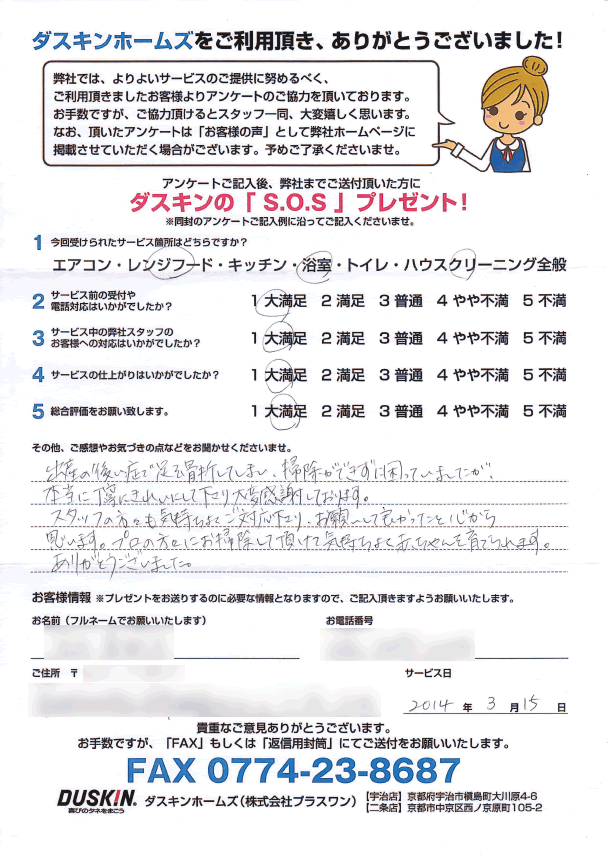 ダスキンホームズをご利用頂き、ありがとうございました！
弊社では、よりよいサービスのご提供に努めるべく、
ご利用頂きましたお客様よりアンケートのご協力を頂いております。
お手数ですが、ご協力頂けるとスタッフ一同、大変嬉しく思います。
なお、頂いたアンケートは「お客様の声」として弊社ホームページに
掲載させていただく場合がございます。予めご了承くださいませ。
アンケートご記入後、弊社までご送付頂いた方に
ダスキンの「S.O.S」プレゼント！
※同封のアンケートご記入例に沿ってご記入くださいませ。
1 今回受けられたサービス箇所はどちらですか？
エアコン・レンジフード・キッチン・浴室・トイレ・ハウスクリーニング全般
2 サービス前の受付や
電話対応はいかがでしたか？ 1 大満足 2 満足 3 普通 4 やや不満 5 不満
3 サービス中の弊社スタッフの
お客様への対応はいかがでしたか？ 1 大満足 2 満足 3 普通 4 やや不満 5 不満
4 サービスの仕上がりはいかがでしたか？ 1 大満足 2 満足 3 普通 4 やや不満 5 不満
5 総合評価をお願い致します。 1 大満足 2 満足 3 普通 4 やや不満 5 不満
その他、ご感想やお気づきの点などをお聞かせくださいませ。
出産の後い症で足を骨折してしまい、掃除ができずに困っていましたが
本当に丁寧にきれいにして下さり大変感謝しております。
スタッフの方々も気持ちよくご対応下さり、お願いして良かったと心から
思います。プロの方々にお掃除して頂けて気持ちよく赤ちゃんを育てられます。
ありがとうございました。
お客様情報 ※プレゼントをお送りするのに必要な情報となりますので、ご記入頂きますようお願いいたします。
お名前（フルネームでお願いいたします） お電話番号
ご住所 〒 サービス日
2014 年 3 月 15 日
貴重なご意見ありがとうございます。
お手数ですが、「FAX」もしくは「返信用封筒」にてご送付をお願いいたします。
FAX 0774-23-8687
DUSKIN 喜びのタネをまこう ダスキンホームズ（株式会社プラスワン） 【宇治店】京都府宇治市槇島町大川原4-6
【二条店】京都市中京区西ノ京原町105-2